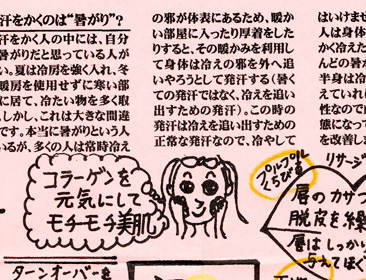 汗をかくのは“暑がり”?
汗をかく人の中には、自分
暑がりだと思っている人が
い。夏は冷房を強く入れ、冬
暖房を使用せずに寒い部
に居て、冷たい物を多く取
。しかし、これは大きな間違
です。本当に暑がりという人
いるが、多くの人は常時冷え
の邪が体表にあるため、暖か
い部屋に入ったり厚着をした
りすると、その暖かみを利用し
て身体は冷えの邪を外へ追
いやろうとして発汗する(暑く
ての発汗ではなく、冷えを追い
出すための発汗)。この時の
発汗は冷えを追い出すための
正常な発汗なので、冷やして
はいけませ
人は身体
かく冷えた
んどの暑が
半身は冷
えていれば
性なので
態になって
を改善しま
コラーゲンを
元気にして
モチモチ美肌
プルプル
くちびる
リサージ
唇のカサつ
脱皮を繰
唇はしっかり
与えてほぐ
ターンオーバーを